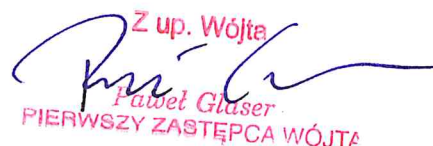 Z up. Wójta
Paweł Glaser
PIERWSZY ZASTĘPCA WÓJTA